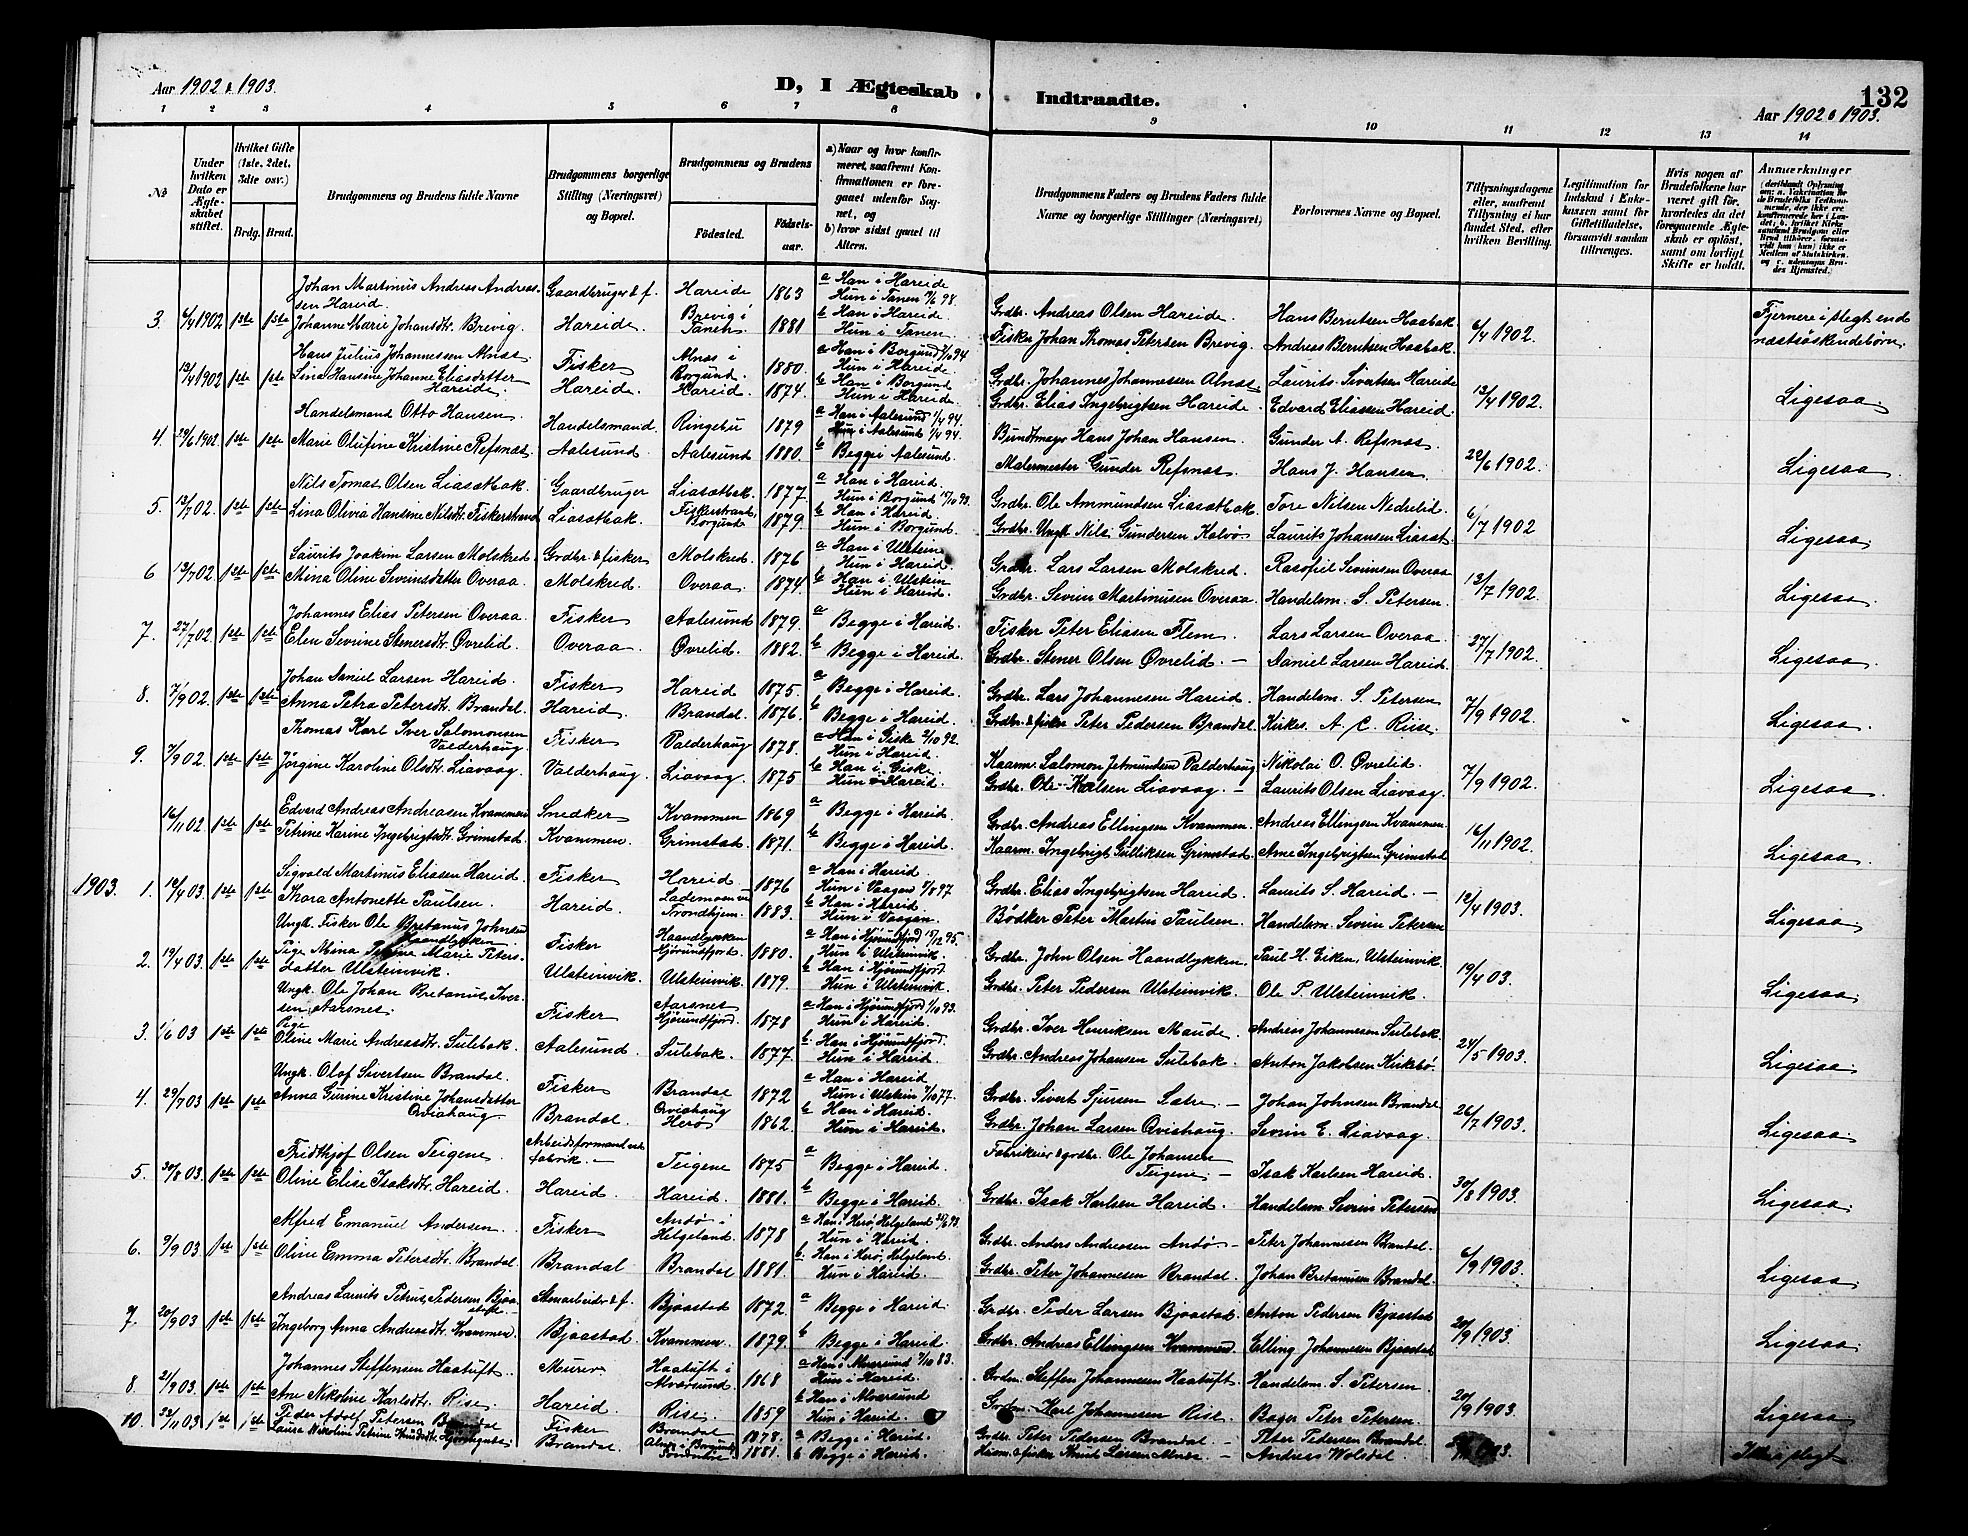 132
Aar 1902 & 1903.
D, I Ægteskab Indtraadte.
Aar 1902 & 1903.
1 2 3 4 5 6 7 8 9 10 11 12 13 14
No
Under hvilken Dato er Ægteskabet stiftet.
Hvilket Gifte (1ste, 2det, 3die osv.)
Brdg. Brud.
Brudgommens og Brudens fulde Navne
Brudgommens borgerlige Stilling (Næringsvei) og Bopæl.
Brudgommens og Brudens
Fødested.
Fødselsaar.
a) Naar og hvor konfirmeret, saafremt Konfirmationen er foregaaet udenfor Sognet, og
b) hvor sidst gaaet til Alters.
Brudgommens Faders og Brudens Faders fulde Navne og borgerlige Stillinger (Næringsvei)
Forlovernes Navne og Bopæl.
Tillysningsdagene eller, saafremt Tillysning ei har fundet Sted, efter hvilken Bevilling.
Legitimation for Indskud i Enkekassen samt for Giftetilladelse, forsaavidt saadan tiltrænges.
Hvis nogen af Brudefolkene har været gift før, hvorledes da det foregaaende Ægteskab er opløst, samt om lovligt Skifte er holdt.
Anmærkninger
3. 6/4 1902 1ste 1ste Johan Martinus Andreas Andreassen Hareid. Gaardbruger & f. Hareide 1863 a Han i Hareide Hun i Tanen 98. Grdbr. Andreas Olsen Hareide. Hans Berntsen Haabak 6/4 1902 Fjernere i slegt end næstsøskendebørn.
Johanne Marie Johansdtr. Brevig. Hareide. Brevig i Tanen. 1881 b Han i Hareide Hun i Tanen. Fisker Johan Thomas Petersen Brevig. Andreas Berntsen Haabak.
13/4 1902 1ste 1ste Hans Julius Johannessen Alnæs Fisker Alnæs i Borgund. 1880. a Han i Borgund 94 Hun i Hareide. Grdbr. Johannes Johannessen Alnæs Laurits Sivertsen Hareide 13/4 1902. Ligesaa.
Lina Hansine Johanne Eliasdatter Hareide. Hareid. Hareid. 1874. b Han i Borgund Hun i Hareide. Grdbr. Elias Ingebrigtsen Hareide Edvard Eliassen Hareid
4. 29/6 1902 1ste 1ste Handelsmand Otto Hansen. Handelsmand. Ringebu 1879 a Han i Aalesund 1/4 94. Hun i Aalesund 1/4 94. Bundtmager Hans Johan Hansen. Gunder A. Refsnæs. 22/6 1902. Ligesaa
Marie Olufine Kristine Refsnæs. Aalesund. Aalesund 1880. b Begge i Aalesund. Malermester Gunder Refsnæs. Hans J. Hansen
5. 13/7 02. 1ste 1ste Nils Tomas Olsen Liasætbak. Gaardbruger Liasætbak. 1877. a Han i Hareid. Hun i Borgund 93. Grdbr. Ole Ammundsen Liasætbak. Tore Nilsen Nedrelid. 6/7 1902 Ligesaa
Lina Olivia Hansine Nilsdtr. Fiskerstrand Liasætbak. Fiskerstrand, Borgund 1879. b Han i Hareid. Hun i Borgund. Grdbr. Nils Gundersen Kalvø Laurits Johansen Liasæt
6 13/7 02. 1ste 1ste Laurits Joakim Larsen Molskred Grdbr. & fisker Molskred. 1876 a Han i Ulstein Hun i Hareid. Grdbr. Lars Larsen Molskred. Rasofiel Severinsen Overaa 13/7 1902. Ligesaa
Mina Oline Severinsdatter Overaa. Molskred. Overaa 1874. b Han i Ulstein Hun i Hareid. Grdbr. Severin Martinusen Overaa. Handelsm. S. Petersen.
7. 27/7 02 1ste 1ste Johannes Elias Petersen Overaa Fisker Aalesund 1879. a Begge i Hareid. Fisker Peter Eliasen Flem. Lars Larsen Overaa 27/7 1902. Ligesaa
Elen Sevrine Stenersdtr. Øvrelid. Overaa. Øvrelid. 1882. b Begge i Hareid. Grdbr. Stener Olsen Øvrelid. — Daniel Larsen Hareid.
8. 7/9 02. 1ste 1ste Johan Daniel Larsen Hareid. Fisker Hareid 1875. a Begge i Hareid. Grdbr. Lars Johannesen Hareid. Handelsm. S. Petersen 7/9 1902. Ligesaa
Anna Petra Petersdtr. Brandal. Hareid. Brandal. 1876. b Begge i Hareid. Grdbr. & fisker Peter Pedersen Brandal. Kirkes. A. C. Riise.
9. 7/9 02. 1ste 1ste Thomas Karl Iver Salomonsen Valderhaug Fisker Valderhaug 1878. a Han i Giske 92. Hun i Hareid. Kaarm. Salomon Jetmundsen Valderhaug Nikolai O. Øvrelid. 7/9 1902. Ligesaa
Jörgine Karoline Olsdtr. Liavaag. Valderhaug. Liavaag. 1875 b Han i Giske. Hun i Hareid. Grdbr. Ole Karlsen Liavaag. — Laurits Olsen Liavaag.
16/11 02 1ste 1ste Edvard Andreas Andreasen Kvammen Snedker Kvammen 1869 a Begge i Hareid. Grdbr. Andreas Ellingsen Kvammen. Andreas Ellingsen Kvammen. 16/11 1902. Ligesaa
Petrine Karine Ingebrigtsdtr. Grimstad. Kvammen. Grimstad. 1871. b Begge i Hareid. Kaarm. Ingebrigt Gulliksen Grimstad. Arne Ingebrigtsen Grimstad
1903. 1. 19/4 03 1ste 1ste Sigvald Martinus Eliasen Hareid. Fisker Hareid 1876 a Han i Hareid Hun i Vaagan 97 Grdbr. Elias Ingebrigtsen Hareid. Laurits S. Hareid. — 12/4 1903. Ligesaa
Thora Antonette Paulsen. Hareid. Lademoen ved Trondhjem. 1883. b Han i Hareid Hun i Vaagan. Bödker Peter Martin Paulsen. Handelsm. Severin Petersen
2. 19/4 03. 1ste 1ste Ungk. Fisker Ole Bretanus Johnsen Haandlykken. Fisker Haandlykken Hjørundfjord. 1880. a Han i Hjørundfjord 95. Hun i Ulsteinvik. Grdbr. John Olsen Haandlykken. Paul H. Eiken, Ulsteinvik. 19/4 03. Ligesaa
Pige Mina Marie Petersdatter Ulsteinvik. Ulsteinvik. Ulsteinvik 1879. b Han i Hjørundfjord Hun i Ulsteinvik. Grdbr. Peter Pedersen Ulsteinvik. Ole P. Ulsteinvik.
3. 1/6 03 1ste 1ste Ungk. Ole Johan Bretanus Iversen Aarsnes. Fisker Aarsnes Hjørundfjord. 1878 a Han i Hjørundfjord 93. Hun i Hareid. Grdbr. Iver Henriksen Maude. Andreas Johannesen Sulebak. 24/5 1903. Ligesaa
Pige Oline Marie Andreasdtr. Sulebak. Aalesund. Sulebak. 1877. b Han i Hjørundfjord. Hun i Hareid. Grdbr. Andreas Johansen Sulebak Anton Jakobsen Kirkebø.
4. 29/7 03 1ste 1ste Ungk. Olaf Sivertsen Brandal. Fisker Brandal 1872 a Han i Hareid Hun i Ulstein 77. Grdbr. Sivert Sjursen Satre — Johan Johnsen Brandal 26/7 1903. Ligesaa
Anna Gurine Kristine Johansdatter Qviahaug Brandal. Qviahaug Herø 1862 b Han i Hareid. Hun i Hareid. Grdbr. Johan Larsen Qviahaug. Severin E. Liavaag.
5. 30/8 03 1ste 1ste Fridthjof Olsen Teigene. Arbeidsformand ved fabrik. — Teigene 1875 a Begge i Hareid. Fabrikeier & grdbr. Ole Johansen Teigene. — Isak Karlsen Hareid. 30/8 1903. Ligesaa
Oline Elise Isaksdtr. Hareid. Hareid. Hareid. 1881. b Begge i Hareid. Grdbr. Isak Karlsen Hareid. Handelsm. Severin Petersen
6. 9/9 03. 1ste 1ste Alfred Emanuel Andersen. Fisker Andø i Helgeland. 1878 a Han i Herø, Helgeland 93. Hun i Hareid. Grdbr. Anders Andreasen Andø — Peter Johannesen Brandal. 6/9 1903. Ligesaa
Oline Emma Petersdtr. Brandal. Brandal Brandal 1881. b Han i Herø, Helgeland. Hun i Hareid. Grdbr. Peter Johannesen Brandal. Johan Bretanusen Brandal.
7. 20/9 03 1ste 1ste Andreas Laurits Petrus Pedersen Bjåstad. Stenarbeider & f. Bjåstad 1872. a Begge i Hareid. Grdbr. Peder Larsen Bjåstad. Anton Pedersen Bjåstad 20/9 1903. Ligesaa
Ingeborg Anna Andreasdtr. Kvammen. Bjåstad. Kvammen. 1879. b Begge i Hareid. Grdbr. Andreas Ellingsen Kvammen. Elling Johannesen Bjåstad
8. 21/9 03. 1ste 1ste Johannes Steffensen Haatuft. Murer Haatuft i Alværsund. 1868 a Han i Alværsund 83. Hun i Hareid. Steffen Johannesen Haatuft. Handelsm. S. Petersen. 20/9 1903. Ligesaa
Ane Nikoline Karlsdtr. Rise. Hareid. Rise. 1859 b Han i Alværsund Hun i Hareid. Karl Johannesen Rise. Bager Peter Petersen.
10. 22/11 03 1ste 1ste Peder Adolf Petersen Brandal Fisker Brandal 1878. a Begge i Hareid. Grdbr. Peter Pedersen Brandal — Peter Pedersen Brandal. Ikke i slegt
Laura Nikoline Petrine Knudsdtr. Brandal. 1881. b Begge i Hareid. Knut Larsen Alnes — Andreas